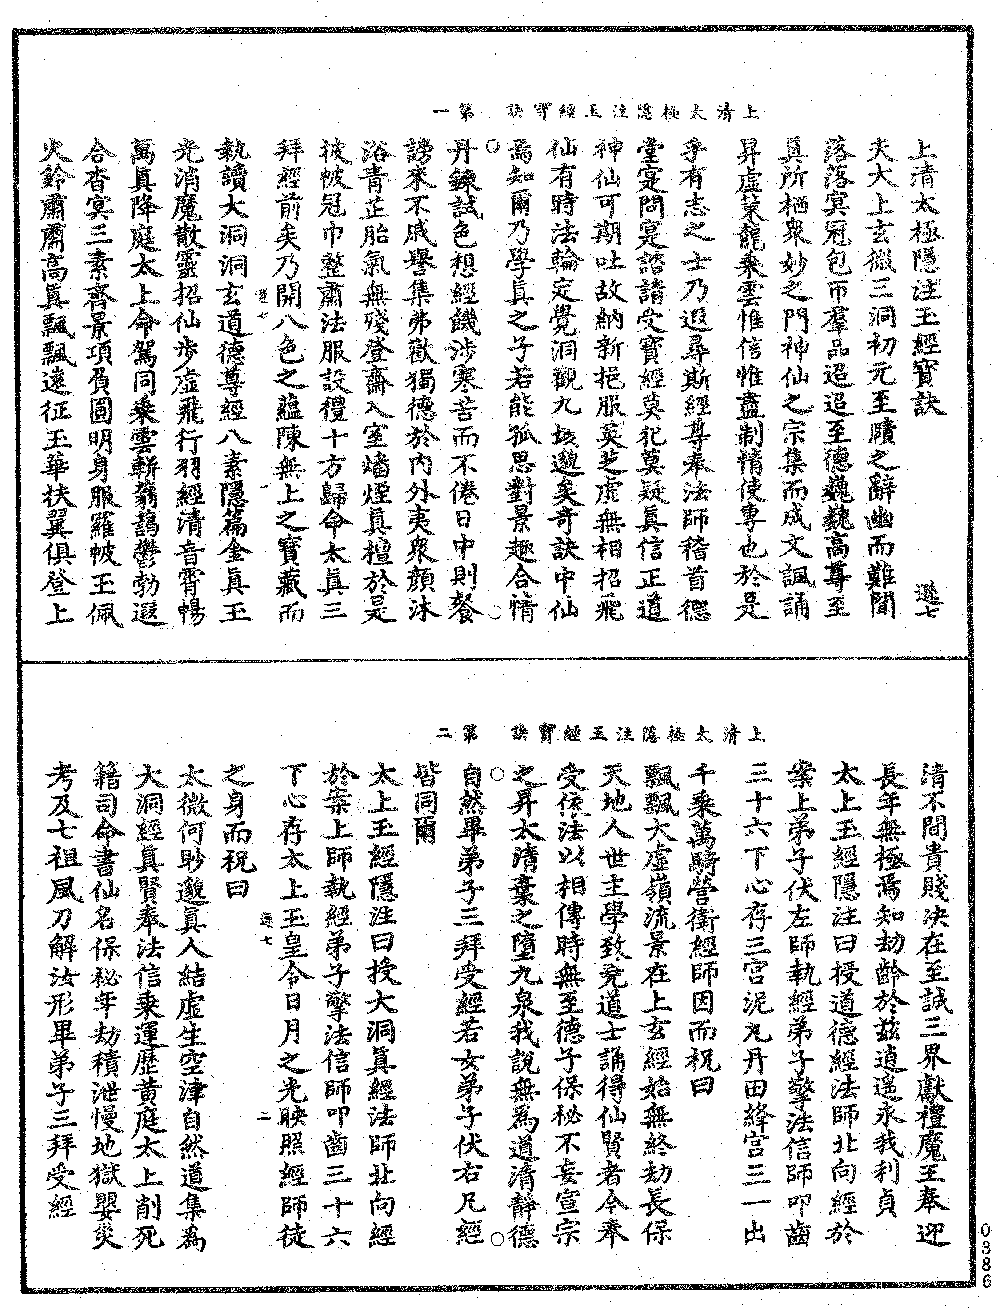 上清太極隱注玉經寶訣 第一
上清太極隱注玉經寶訣 遜七
夫大上玄微三洞初元至賾之辭幽而難聞
落落冥冠包帀羣品迢迢至德巍巍高尊至
真所栖衆妙之門神仙之宗集而成文諷誦
昇虛策龍乘雲惟信惟盡制情使專也於是
乎有志之士乃遐尋斯經尊奉法師稽首德
堂寔問寔諮諸受寶經莫祀莫疑真信正道
神仙可期吐故納新挹服英芝虛無相招飛
仙有時法輪定覺洞觀九垓邈矣奇訣中仙
焉知爾乃學真之子若能孤思對景趣合情
丹鍊試色想經饑涉寒苦而不倦日中則餐
謗來不戚譽集弗歡獨德於內外夷衆顏沐
浴青芷胎氣無殘登齋入室燔煙真檀於是
披帔冠巾整肅法服設禮十方歸命太真三
拜經前矣乃開八色之蘊陳無上之寶藏而
執讀大洞洞玄道德尊經八素隱篇金真玉
光消魔散靈招仙步虛飛行羽經清音霄暢
萬真降庭太上命駕同乘雲軿翁藹鬱勃遐
合杳冥三素齊景項負圓明身服羅帔玉佩
火鈴肅肅高真飄飄遠征玉華扶翼俱登上
上清太極隱注玉經寶訣 第二
清不問貴賤決在至誠三界獻禮魔王奉迎
長年無極焉知劫齡於茲逍遙永我利貞
太上玉經隱注曰授道德經法師北向經於
案上弟子伏左師執經弟子擎法信師叩齒
三十六下心存三宮泥丸丹田絳宮三一出
千乘萬騎營衛經師因而祝曰
飄飄大虛嶺流景在上玄經始無終劫長保
天地人世主學致兗道士誦得仙賢者令奉
受依法以相傳時無至德子保秘不妄宣宗
之昇太清棄之墮九泉我說無為道清靜德
自然畢弟子三拜受經若女弟子伏右凡經
皆同爾
太上玉經隱注曰授大洞真經法師北向經
於案上師執經弟子擎法信師叩齒三十六
下心存太上玉皇令日月之光映照經師徒
遜七 二
之身而祝曰
太微何眇邈真人結虛生空津自然道集為
大洞經真賢奉法信乘運歷黃庭太上削死
籍司命書仙名保秘年劫積泄慢地獄嬰災
考及七祖風刀解汝形畢弟子三拜受經
0386